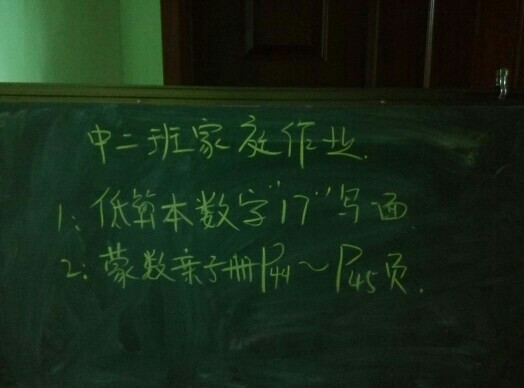 中二班家庭作业.
1:低算本数字"17"写 面
2:蒙数亲子册P44~P45页.